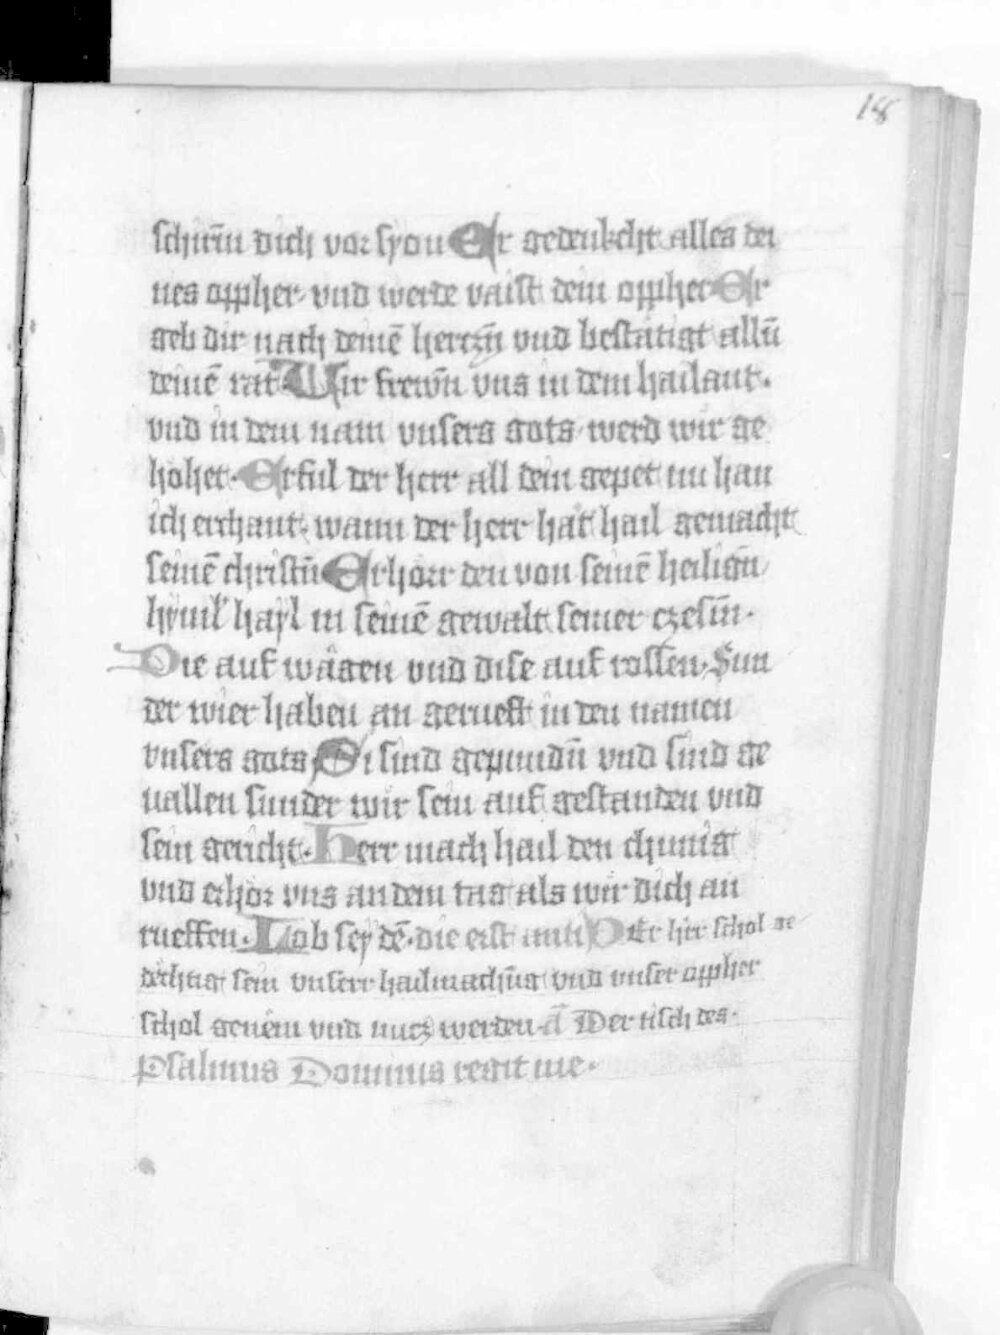 158
schirm̄ dich vor syon Er gedenkcht alles dei
nes oppher· vnd werde vaist dein oppher Er
geb dir nach deinē hertzn̄ vnd bestätigt alln̄
deinē rat· Wir frewn̄ vns in dem hailant·
vnd in dem nam vnsers gots· werd wir ge
hohet· Erful der herr all dein gepet nu han
ich erchant· wann der herr hat hail gemacht
seinē christn̄ Erhorr den von seinē heilign̄
hyml hayl in seinē gewalt seiner czesm̄·
Die auf wägen vnd dise auf rossen· Sun
der wier haben an gerueft in den namen
vnsers gots· Si sind gepundn̄ vnd sind ge
uallen sunder wir sein auf gestanden vnd
sein gericht· Herr mach hail den chunig
vnd erhor vns an dem tag als wir dich an
rueffen· Lob sey dē· die erst anti Der hrr schol ge
dechtig sein vnserr hailmachūg vnd vnser oppher
schol genem vnd nucz werden· a Der tisch des·
Psalmus Dominus regit me·